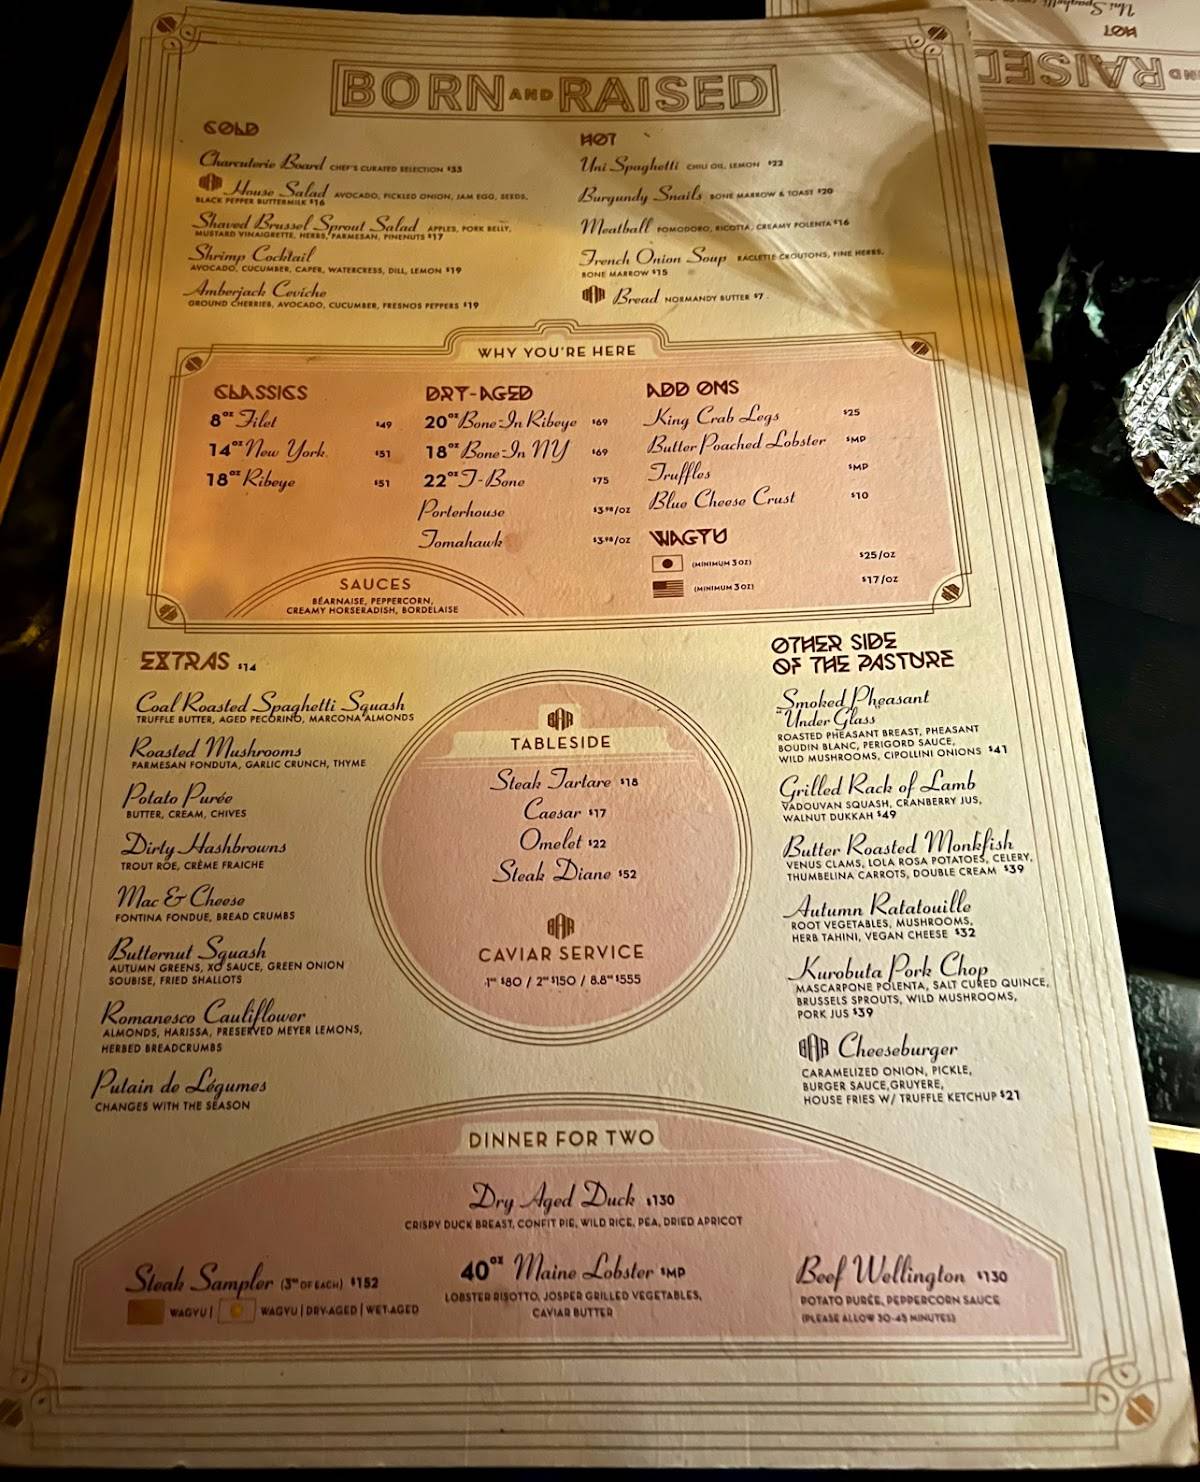 BORN AND RAISED
COLD
Charcuterie Board CHEF'S CURATED SELECTION $33
BAR House Salad AVOCADO, PICKLED ONION, JAM EGG, SEEDS,
BLACK PEPPER BUTTERMILK $16
Shaved Brussel Sprout Salad APPLES, PORK BELLY,
MUSTARD VINAIGRETTE, HERBS, PARMESAN, PINENUTS $17
Shrimp Cocktail
AVOCADO, CUCUMBER, CAPER, WATERCRESS, DILL, LEMON $19
Amberjack Ceviche
GROUND CHERRIES, AVOCADO, CUCUMBER, FRESNOS PEPPERS $19
HOT
Uni Spaghetti CHILI OIL, LEMON $22
Burgundy Snails BONE MARROW & TOAST $20
Meatball POMODORO, RICOTTA, CREAMY POLENTA $16
French Onion Soup RACLETTE CROUTONS, FINE HERBS,
BONE MARROW $15
BAR Bread NORMANDY BUTTER $7
WHY YOU'RE HERE
CLASSICS
8oz Filet $49
14oz New York $51
18oz Ribeye $51
DRY-AGED
20oz Bone-In Ribeye $69
18oz Bone-In NY $69
22oz T-Bone $75
Porterhouse $3.98/OZ
Tomahawk $3.98/OZ
ADD ONS
King Crab Legs $25
Butter Poached Lobster $MP
Truffles $MP
Blue Cheese Crust $10
WAGYU
(MINIMUM 3 OZ) $25/OZ
(MINIMUM 3 OZ) $17/OZ
SAUCES
BÉARNAISE, PEPPERCORN,
CREAMY HORSERADISH, BORDELAISE
EXTRAS $14
Coal Roasted Spaghetti Squash
TRUFFLE BUTTER, AGED PECORINO, MARCONA ALMONDS
Roasted Mushrooms
PARMESAN FONDUTA, GARLIC CRUNCH, THYME
Potato Purée
BUTTER, CREAM, CHIVES
Dirty Hashbrowns
TROUT ROE, CRÈME FRAICHE
Mac & Cheese
FONTINA FONDUE, BREAD CRUMBS
Butternut Squash
AUTUMN GREENS, XO SAUCE, GREEN ONION
SOUBISE, FRIED SHALLOTS
Romanesco Cauliflower
ALMONDS, HARISSA, PRESERVED MEYER LEMONS,
HERBED BREADCRUMBS
Putain de Légumes
CHANGES WITH THE SEASON
BAR
TABLESIDE
Steak Tartare $18
Caesar $17
Omelet $22
Steak Diane $52
BAR
CAVIAR SERVICE
1oz $80 / 2oz $150 / 8.8oz $555
OTHER SIDE
OF THE PASTURE
Smoked Pheasant
"Under Glass
ROASTED PHEASANT BREAST, PHEASANT
BOUDIN BLANC, PERIGORD SAUCE,
WILD MUSHROOMS, CIPOLLINI ONIONS $41
Grilled Rack of Lamb
VADOUVAN SQUASH, CRANBERRY JUS,
WALNUT DUKKAH $49
Butter Roasted Monkfish
VENUS CLAMS, LOLA ROSA POTATOES, CELERY,
THUMBELINA CARROTS, DOUBLE CREAM $39
Autumn Ratatouille
ROOT VEGETABLES, MUSHROOMS,
HERB TAHINI, VEGAN CHEESE $32
Kurobuta Pork Chop
MASCARPONE POLENTA, SALT CURED QUINCE,
BRUSSELS SPROUTS, WILD MUSHROOMS,
PORK JUS $39
BAR Cheeseburger
CARAMELIZED ONION, PICKLE,
BURGER SAUCE, GRUYERE,
HOUSE FRIES W/ TRUFFLE KETCHUP $21
DINNER FOR TWO
Dry Aged Duck $130
CRISPY DUCK BREAST, CONFIT PIE, WILD RICE, PEA, DRIED APRICOT
Steak Sampler (3oz OF EACH) $152
WAGYU | WAGYU | DRY-AGED | WET-AGED
40oz Maine Lobster $MP
LOBSTER RISOTTO, JOSPER GRILLED VEGETABLES,
CAVIAR BUTTER
Beef Wellington $130
POTATO PURÉE, PEPPERCORN SAUCE
(PLEASE ALLOW 30-45 MINUTES)
Uni Spaghetti
HOT
AND RAISED